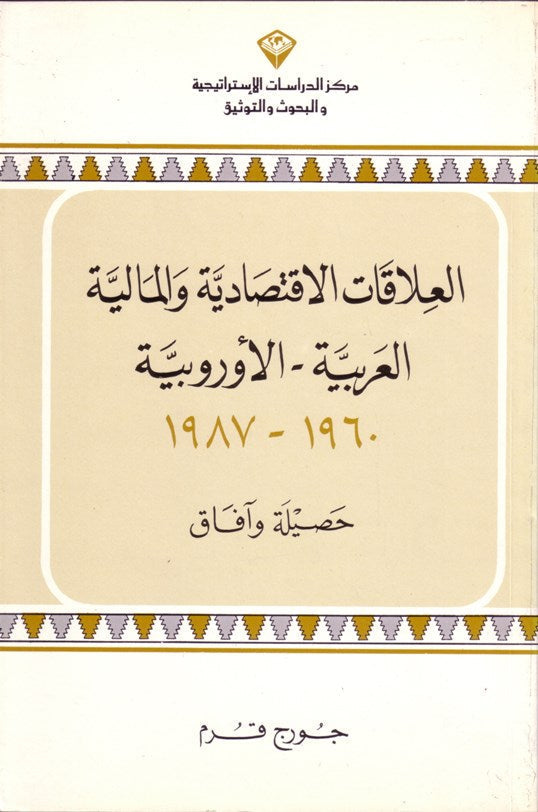 مركز الدراسات الإستراتيجية
والبحوث والتوثيق
العِلاقَات الاقتصَاديَّة وَالمَاليَّة
العَربيَّة - الأوروبيَّة
١٩٦٠ - ١٩٨٧
حَصيْلَة وَآفَاق
جورج قرم